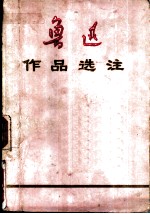 鲁迅
作品选注